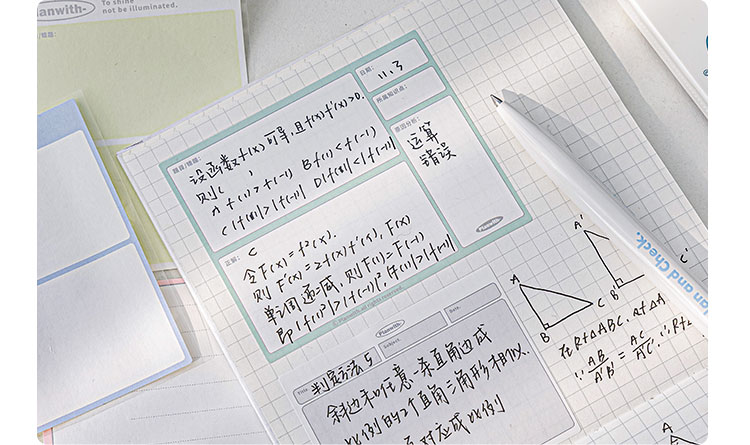 Planwith-
To shine
not be illuminated.
题目/错题:
设函数f(x)可导,且f(x)f'(x)>0.
则( )
A f(1)>f(-1) B f(1)<f(-1)
C |f(1)|>|f(-1)| D |f(1)|<|f(-1)|
日期:
11.3
所属知识点:
原因分析:
运算
错误
Planwith-
正解:
C
令F(x)=f²(x).
则F'(x)=2f(x)f'(x), F(x)
单调递减,则F(1)=F(-1)
即|f(1)²|>|f(-1)|²,|f(1)|>|f(-1)|
© Planwith. all rights reserved.
Planwith-
Title
判定方法5
Subject.
Date.
斜边和任意一条直角边成
比例的2个直角三角形相似.
对应成比例
A
B
C
A'
B'
C'
在Rt△ABC.
∵ AB/A'B' = AC/A'C' ∴Rt
A
lan and Check.